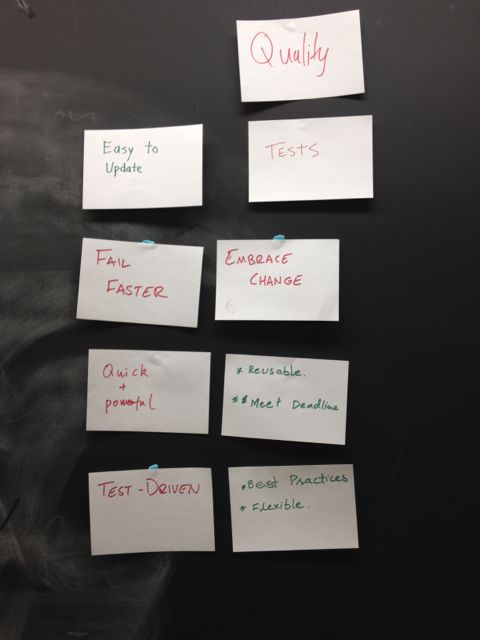 Quality
Easy to
Update
TESTS
FAIL
FASTER
EMBRACE
CHANGE
Quick
+
powerful
* Reusable.
* Meet Deadline
TEST-DRIVEN
* Best Practices
* Flexible.